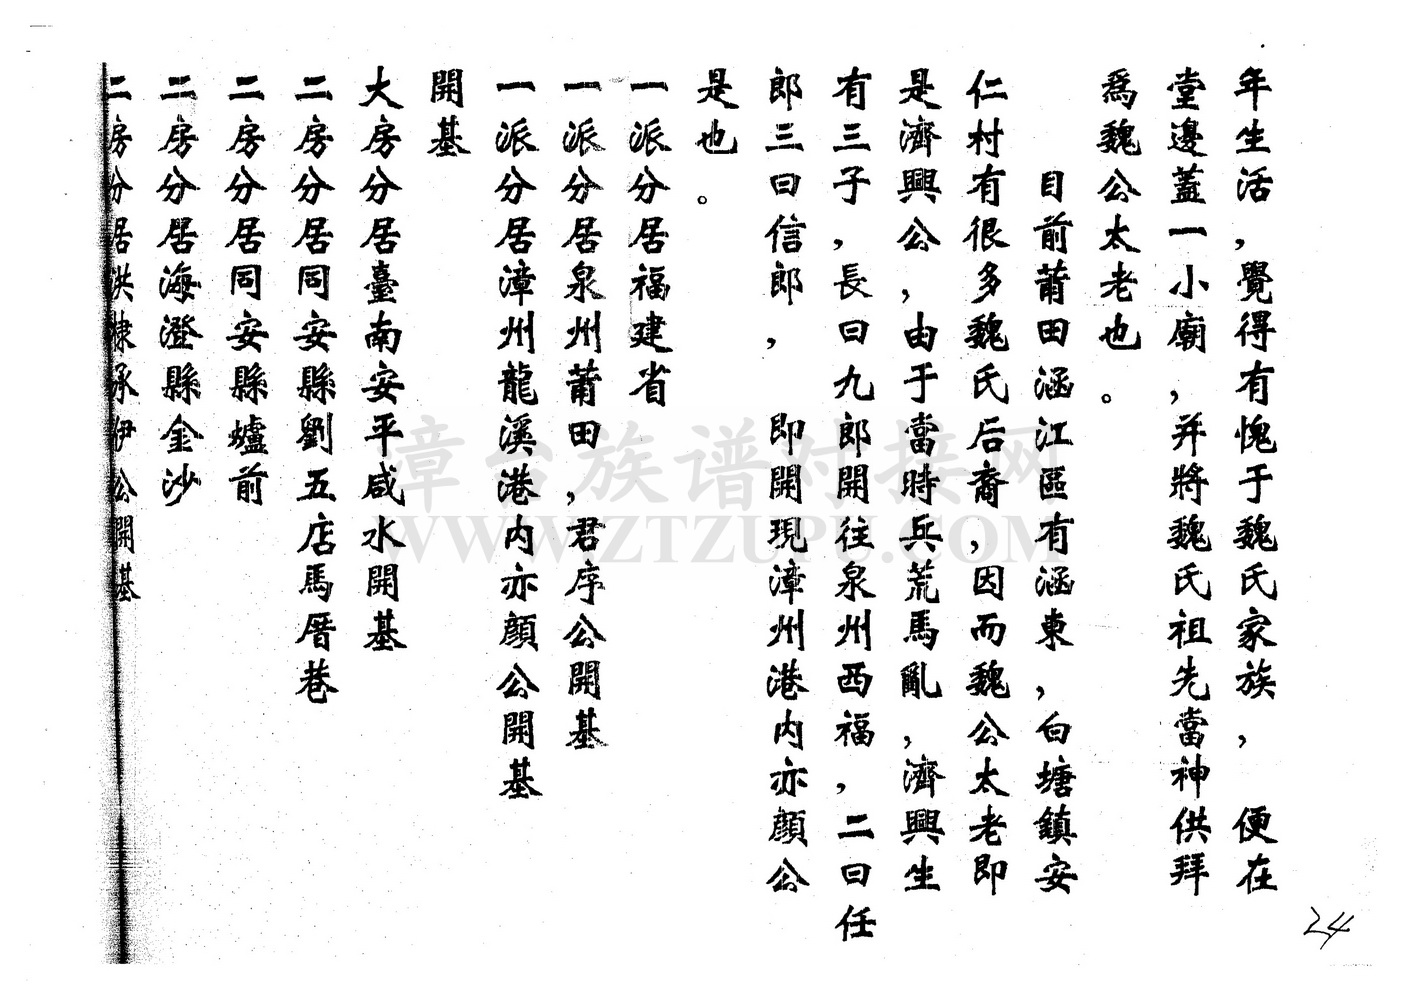 年生活，覺得有愧于魏氏家族，便在
堂邊蓋一小廟，并將魏氏祖先當神供拜
爲魏公太老也。
目前莆田涵江區有涵東，白塘鎮安
仁村有很多魏氏后裔，因而魏公太老即
是濟興公，由于當時兵荒馬亂，濟興生
有三子，長曰九郎開往泉州西福，二曰任
郎三曰信郎，即開現漳州港内亦顔公
是也。
一派分居福建省
一派分居泉州莆田，君序公開基
一派分居漳州龍溪港内亦顔公開基
開基
大房分居臺南安平咸水開基
二房分居同安縣劉五店馬厝巷
二房分居同安縣壚前
二房分居海澄縣金沙
二房分居洪棣承伊公開基
24
漳台族谱对接网
WWW.ZTZUPU.COM